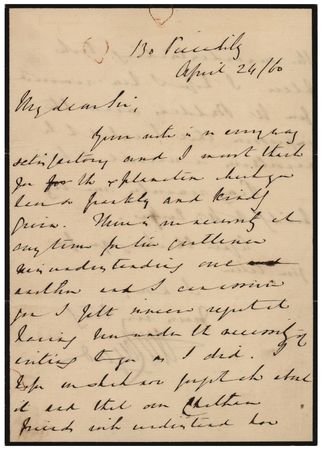 130 Piccadilly
April 24/60
My dear Sir,
Your note is in every way
satisfactory and I must thank
for the explanation which you
have so frankly and kindly
given. There is no necessity at
any time for two gentlemen
misunderstanding one
another and I can assure
you I felt sincere regret at
having been under the necessity of
writing to you as I did. I
hope we shall now forget all about
it and that our Chatham
friends will understand how